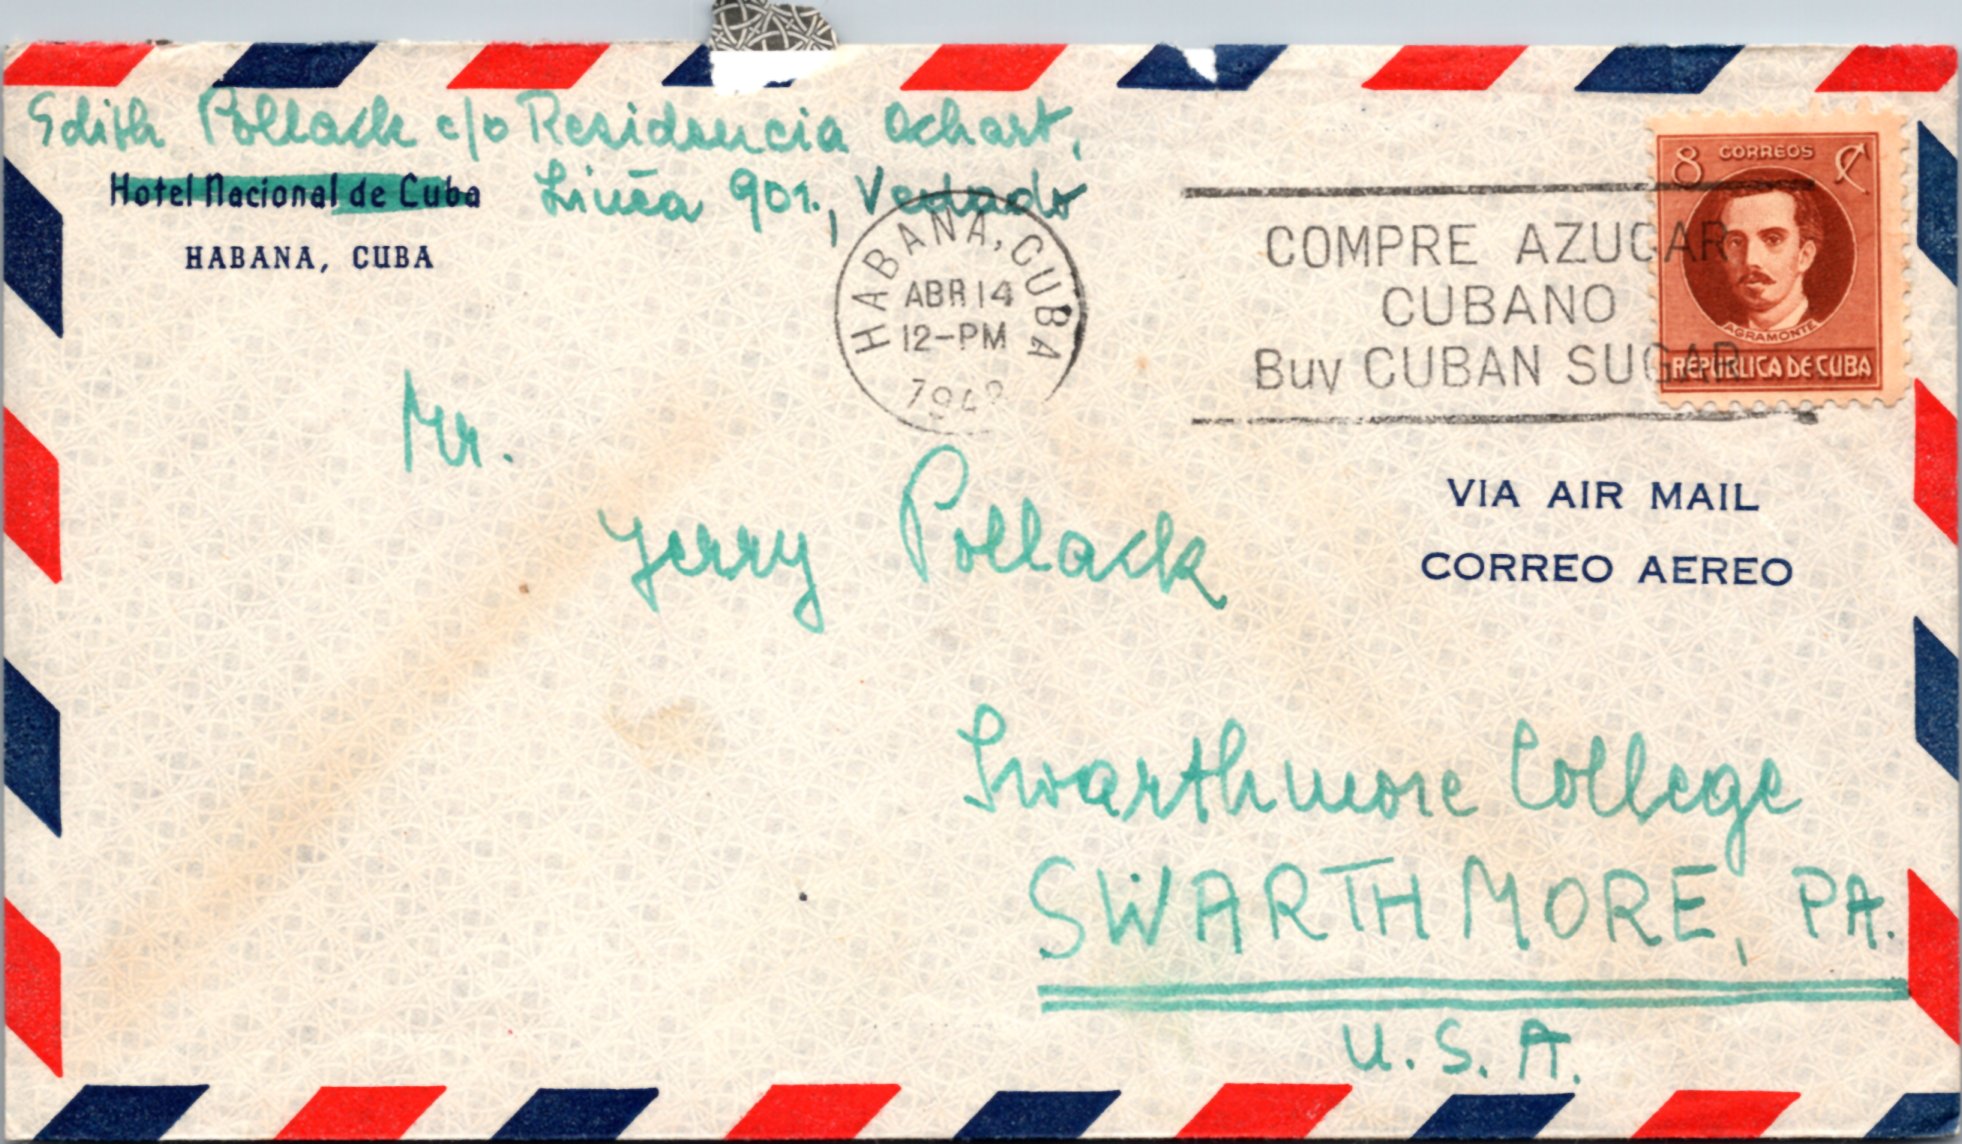 Edith Pollack c/o Residencia Ochart,
Hotel Nacional de Cuba
Linea 901., Vedado
HABANA, CUBA
HABANA, CUBA
ABR 14
12-PM
COMPRE AZUCAR
CUBANO
Buy CUBAN SUGAR
8 CORREOS ¢
AGRAMONTE
REPUBLICA DE CUBA
VIA AIR MAIL
CORREO AEREO
Mr.
Jerry Pollack
Swarthmore College
SWARTHMORE, PA.
U.S.A.